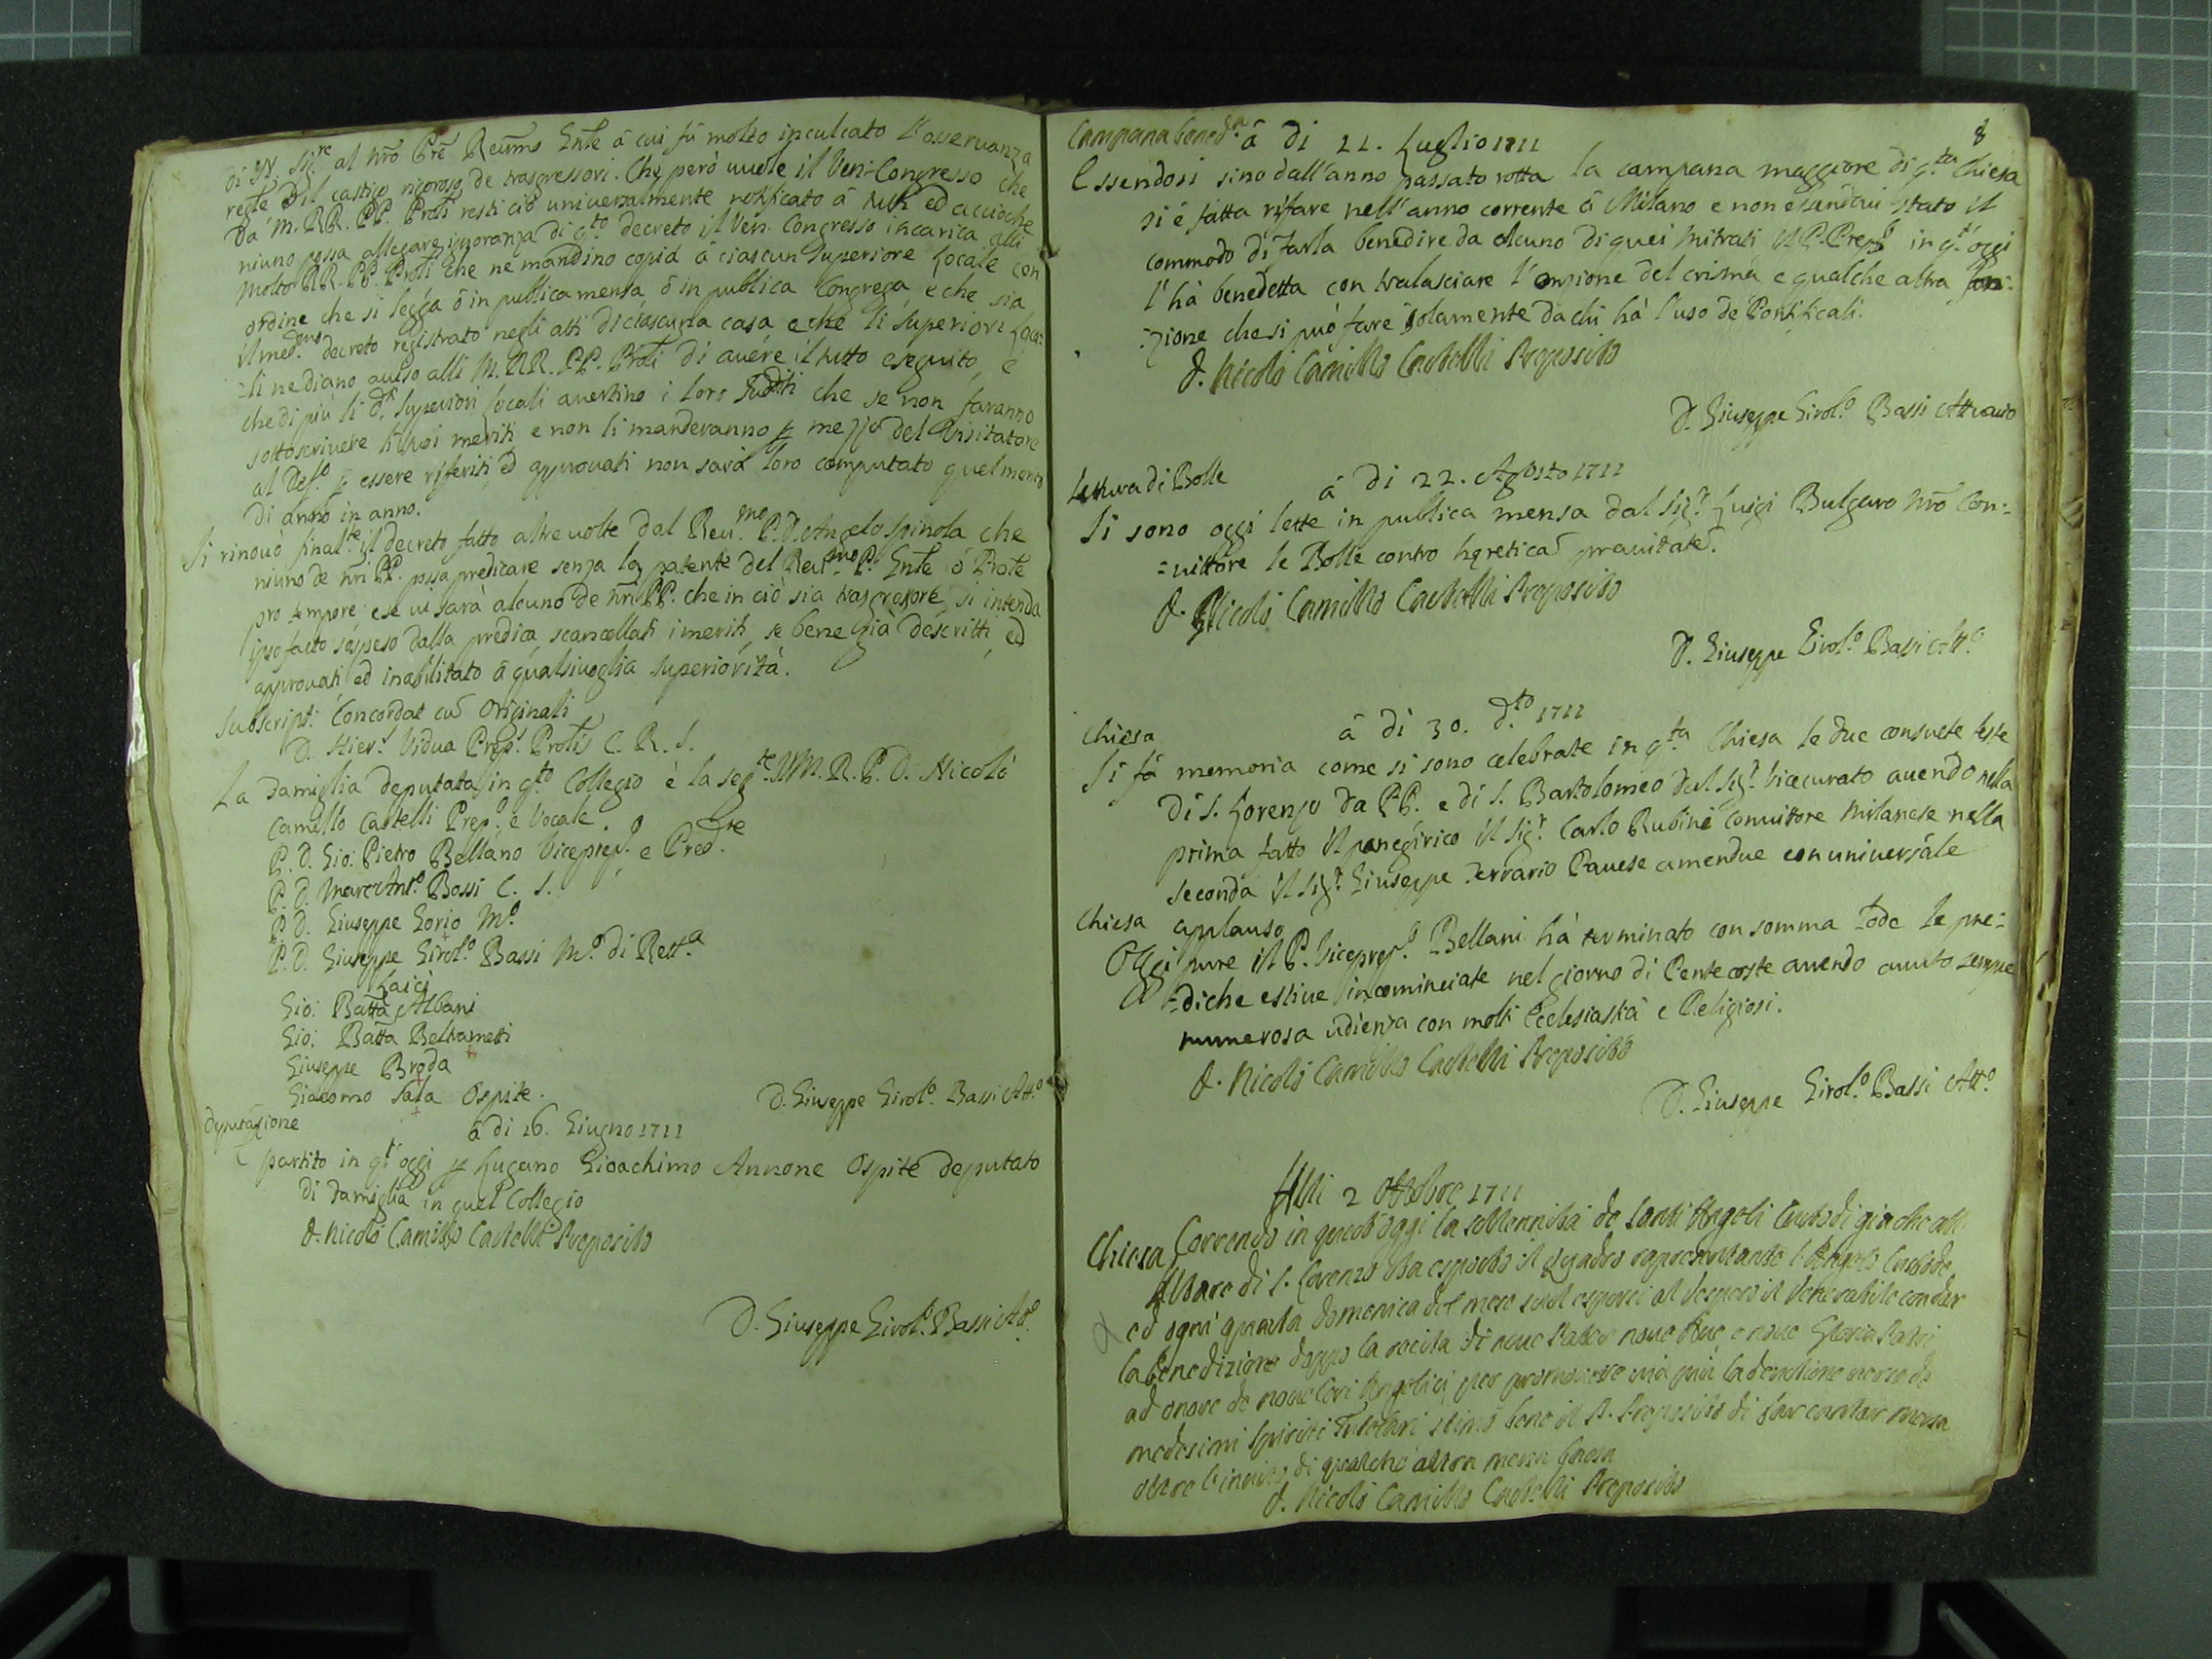 di N. Sig.re al nrõ Prẽ Reũmo Gnle à cui fù molto inculcato l'osservanza
regle dil castigo rigoroso de trasgressori. Che però vuole il Ven: Congresso che
da M. RR. PP. Proli resti ciò universalmente notificato à tutti ed acciochè
niuno possa allegare ignoranza di q.to decreto il Ven. Congresso incarica alli
Molto RR. PP. Proli che ne mandino copia à ciascun Superiore Locale con
ordine che si legga ò in publica mensa, ò in publica Congrega e che sia
il med.mo decreto registrato negli atti di ciascuna casa e che li Superiori Loca:
:li ne diano aviso alli M. RR. PP. Proli di avere il tutto eseguito, e
che di più li d.i Superiori locali avertino i loro Sudditi che se non faranno
sottoscrivere li suoi meriti e non li manderanno p mezzo del Visitatore
al Def.o p essere riferiti, ed approvati non sarà loro computato quel merito
di anno in anno.
Si rinovò final.te il decreto fatto altre volte dal Reu.mo P. D. Angelo Spinola che
niuno de nri PP. possa predicare senza la patente del Reu.mo P. Gnle ò Prole
pro tempore: e se vi sarà alcuno de nri PP. che in ciò sia trasgressore, si intenda
ipso facto sospeso dalla predica, scancellati i meriti, se bene già descritti, ed
approvati ed inabilitato à qualsivoglia superiorità.
Subscript: Concordat cũ Originali
D. Hier.s Vidua Prep.s Prolis C. R. S.
La Famiglia deputata in q.to Collegio è la seg.te Il M. R. P. D. Nicolò
Camillo Castelli Prep.o e Vocale.
P. D. Gio: Pietro Bellano Viceprep.o e Pred.re
P. D. Marc'Ant.o Bossi C. S.
P. D. Giuseppe Gorio M.o
P. D. Giuseppe Girol.o Bassi M.o di Rett.a
Laici
Gio: Batta Albani
Gio: Batta Beltrametti
Giuseppe Broda
Giacomo Sala Ospite.
D. Giuseppe Girol.o Bassi Att.o
Deputazione
à di 16. Giugno 1711
partito in q.t' oggi p Lugano Gioachimo Annone Ospite deputato
di Famiglia in quel Collegio
D. Nicolò Camillo Castelli Preposito
D. Giuseppe Girol.o Bassi Att.o
8
Campana bened.a à di 21. Luglio 1711
Essendosi sino dall'anno passato rotta la campana maggiore di q.ta Chiesa
si è fatta rifare nell'anno corrente à Milano e non essendovi stato il
commodo di farla benedire da alcuno di quei Mitrati il P. Prep.o in q.t' oggi
l'hà benedetta con tralasciare l'onzione del crisma e qualche altra fon:
:zione che si può fare solamente da chi hà l'uso de Pontificali.
D. Nicolò Camillo Castelli Preposito
D. Giuseppe Girol.o Bassi Attuario
Lettura di Bolle
à di 22. Agosto 1711
Si sono oggi lette in publica mensa dal Sig.r Luigi Bulgaro nrõ Con:
:vittore le Bolle contro hęreticã pravitatẽ.
D. Nicolò Camillo Castelli Preposito
D. Giuseppe Girol.o Bassi Att.o
Chiesa
à di 30. d.to 1711
Si fà memoria come si sono celebrate in q.ta Chiesa le due consuete feste
di S. Lorenzo da PP. e di S. Bartolomeo dal Sig.r Vicecurato avendo nella
prima fatto il panegirico il Sig.r Carlo Rubini Convittore Milanese nella
seconda il Sig.r Giuseppe Ferrario Pavese amendue con universale
applauso
Chiesa
Oggi pure il P. Viceprep.o Bellani hà terminato con somma lode le pre:
:diche estive incominciate nel giorno di Pentecoste avendo avuto sempre
numerosa udienza con molti Ecclesiastici e Religiosi.
D. Nicolò Camillo Castelli Preposito
D. Giuseppe Girol.o Bassi Att.o
Alli 2 Ottobre 1711
Chiesa
Correndo in quest'oggi la sollennità de Santi Angeli Custodi giache all'
Altare di S. Lorenzo sta esposto il quadro rapresentante l'Angelo Custode
ed ogni quarta domenica del mese suol esporsi al Vespero il Venerabile con dar
la benedizione doppo la recita di nove Pater nove Ave e nove Gloria Patri
ad onore de nove Cori Angelici, per promovere via più la devotione verso de
medesimi Spiriti Tutelari stimò bene il P. Preposito di far cantar messa
oltre l'invito di qualche altra messa bassa
D. Nicolò Camillo Castelli Preposito